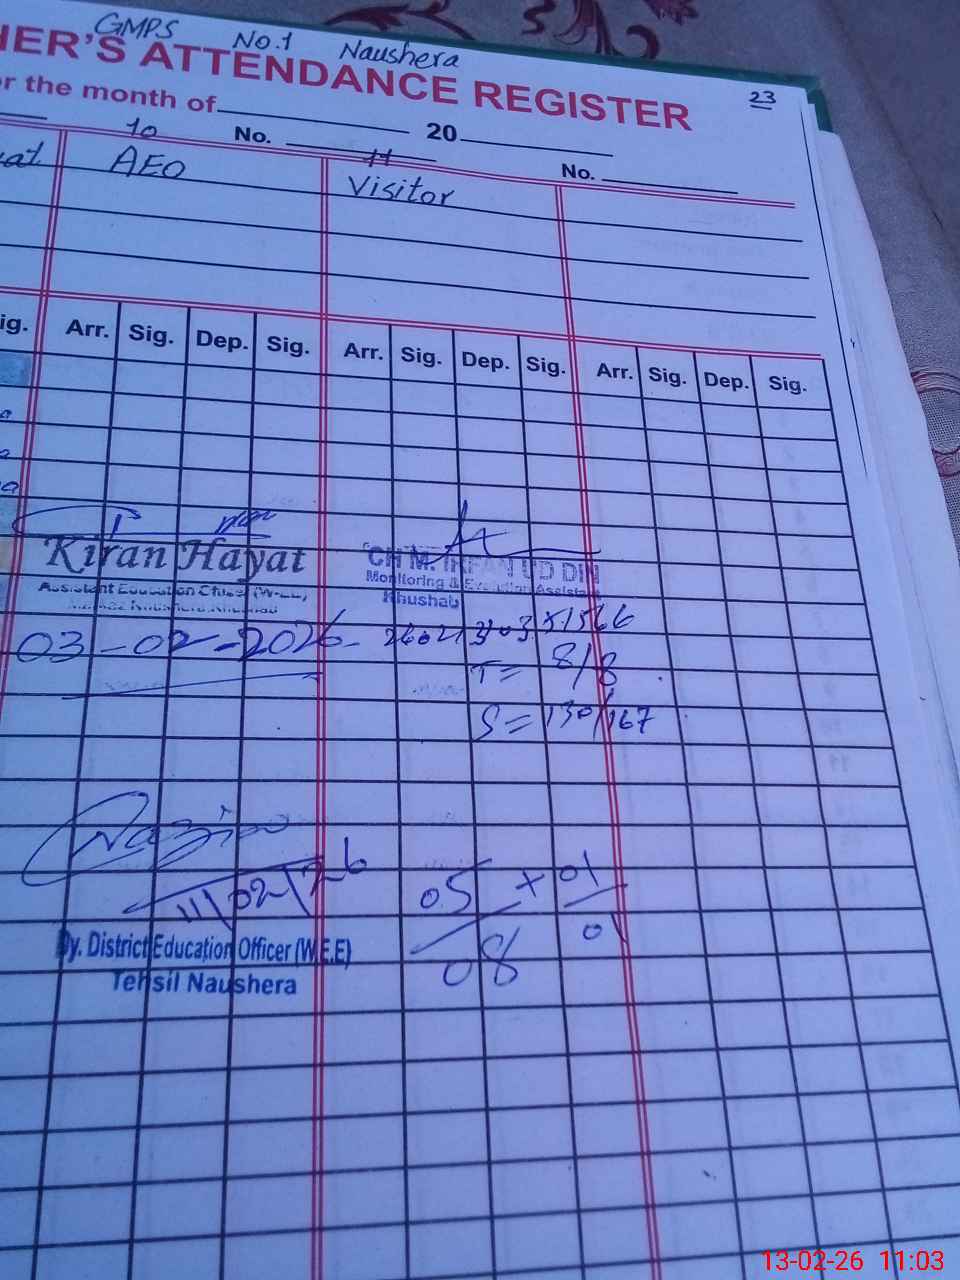 GMPS No.1 Naushera
HER'S ATTENDANCE REGISTER
23
or the month of 20
10 No. 11 No.
AEO Visitor
ig. Arr. Sig. Dep. Sig. Arr. Sig. Dep. Sig. Arr. Sig. Dep. Sig.
Kiran Hayat
Assistant Education Officer (W-EE)
CH M. IRFAN UD DIN
Monitoring & Evalution Assistant
Khushab
03-02-2026
T= 8/8
S= 130/167
11/02/26
05 + 01
08 01
Dy. District Education Officer (W.E.E)
Tehsil Naushera
13-02-26 11:03